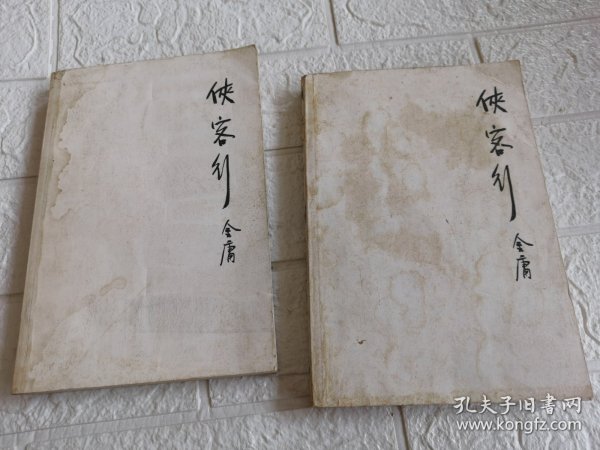 俠客行
金庸
俠客行
金庸
孔夫子旧書网
www.kongfz.com